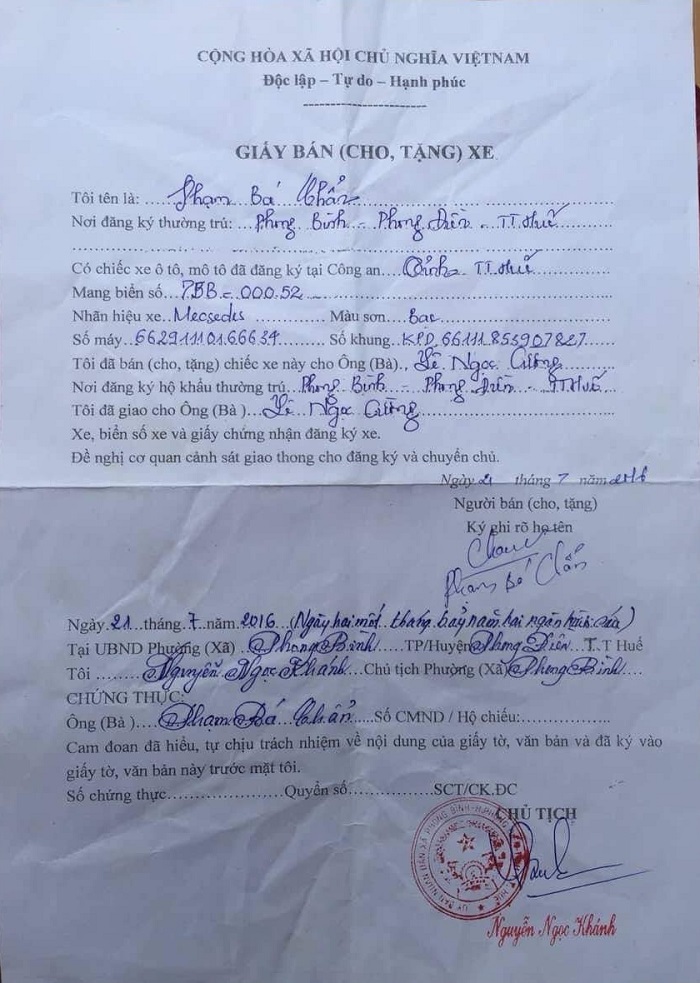 CỘNG HÒA XÃ HỘI CHỦ NGHĨA VIỆTNAM
Độc lập – Tự do – Hạnh phúc
GIẤY BÁN (CHO, TẶNG) XE
Tôi tên là: Phạm Bá Chẩn
Nơi đăng ký thường trú: Phong Bình - Phong Điền - TT Huế
Có chiếc xe ô tô, mô tô đã đăng ký tại Công an Tỉnh TT Huế
Mang biển số 75B - 000.52
Nhãn hiệu xe Mecsedes Màu sơn Bac
Số máy 6629111016 6634 Số khung KPD.66111855907827
Tôi đã bán (cho, tặng) chiếc xe này cho Ông (Bà) Lê Ngọc Cường
Nơi đăng ký hộ khẩu thường trú Phong Bình - Phong Điền - TT Huế
Tôi đã giao cho Ông (Bà) Lê Ngọc Cường
Xe, biển số xe và giấy chứng nhận đăng ký xe.
Đề nghị cơ quan cảnh sát giao thong cho đăng ký và chuyển chủ.
Ngày 21 tháng 7 năm 2016
Người bán (cho, tặng)
Ký ghi rõ họ tên
Phạm Bá Chẩn
Ngày 21 tháng 7 năm 2016 (Ngày hai mốt tháng bảy năm hai ngàn mười sáu)
Tại UBND Phường (Xã) Phong Bình TP/Huyện Phong Điền T.T Huế
Tôi Nguyễn Ngọc Khánh Chủ tịch Phường (Xã) Phong Bình
CHỨNG THỰC:
Ông (Bà) Phạm Bá Chẩn Số CMND / Hộ chiếu:
Cam đoan đã hiểu, tự chịu trách nhiệm về nội dung của giấy tờ, văn bản và đã ký vào
giấy tờ, văn bản này trước mặt tôi.
Số chứng thực Quyển số SCT/CK.ĐC
CHỦ TỊCH
Nguyễn Ngọc Khánh